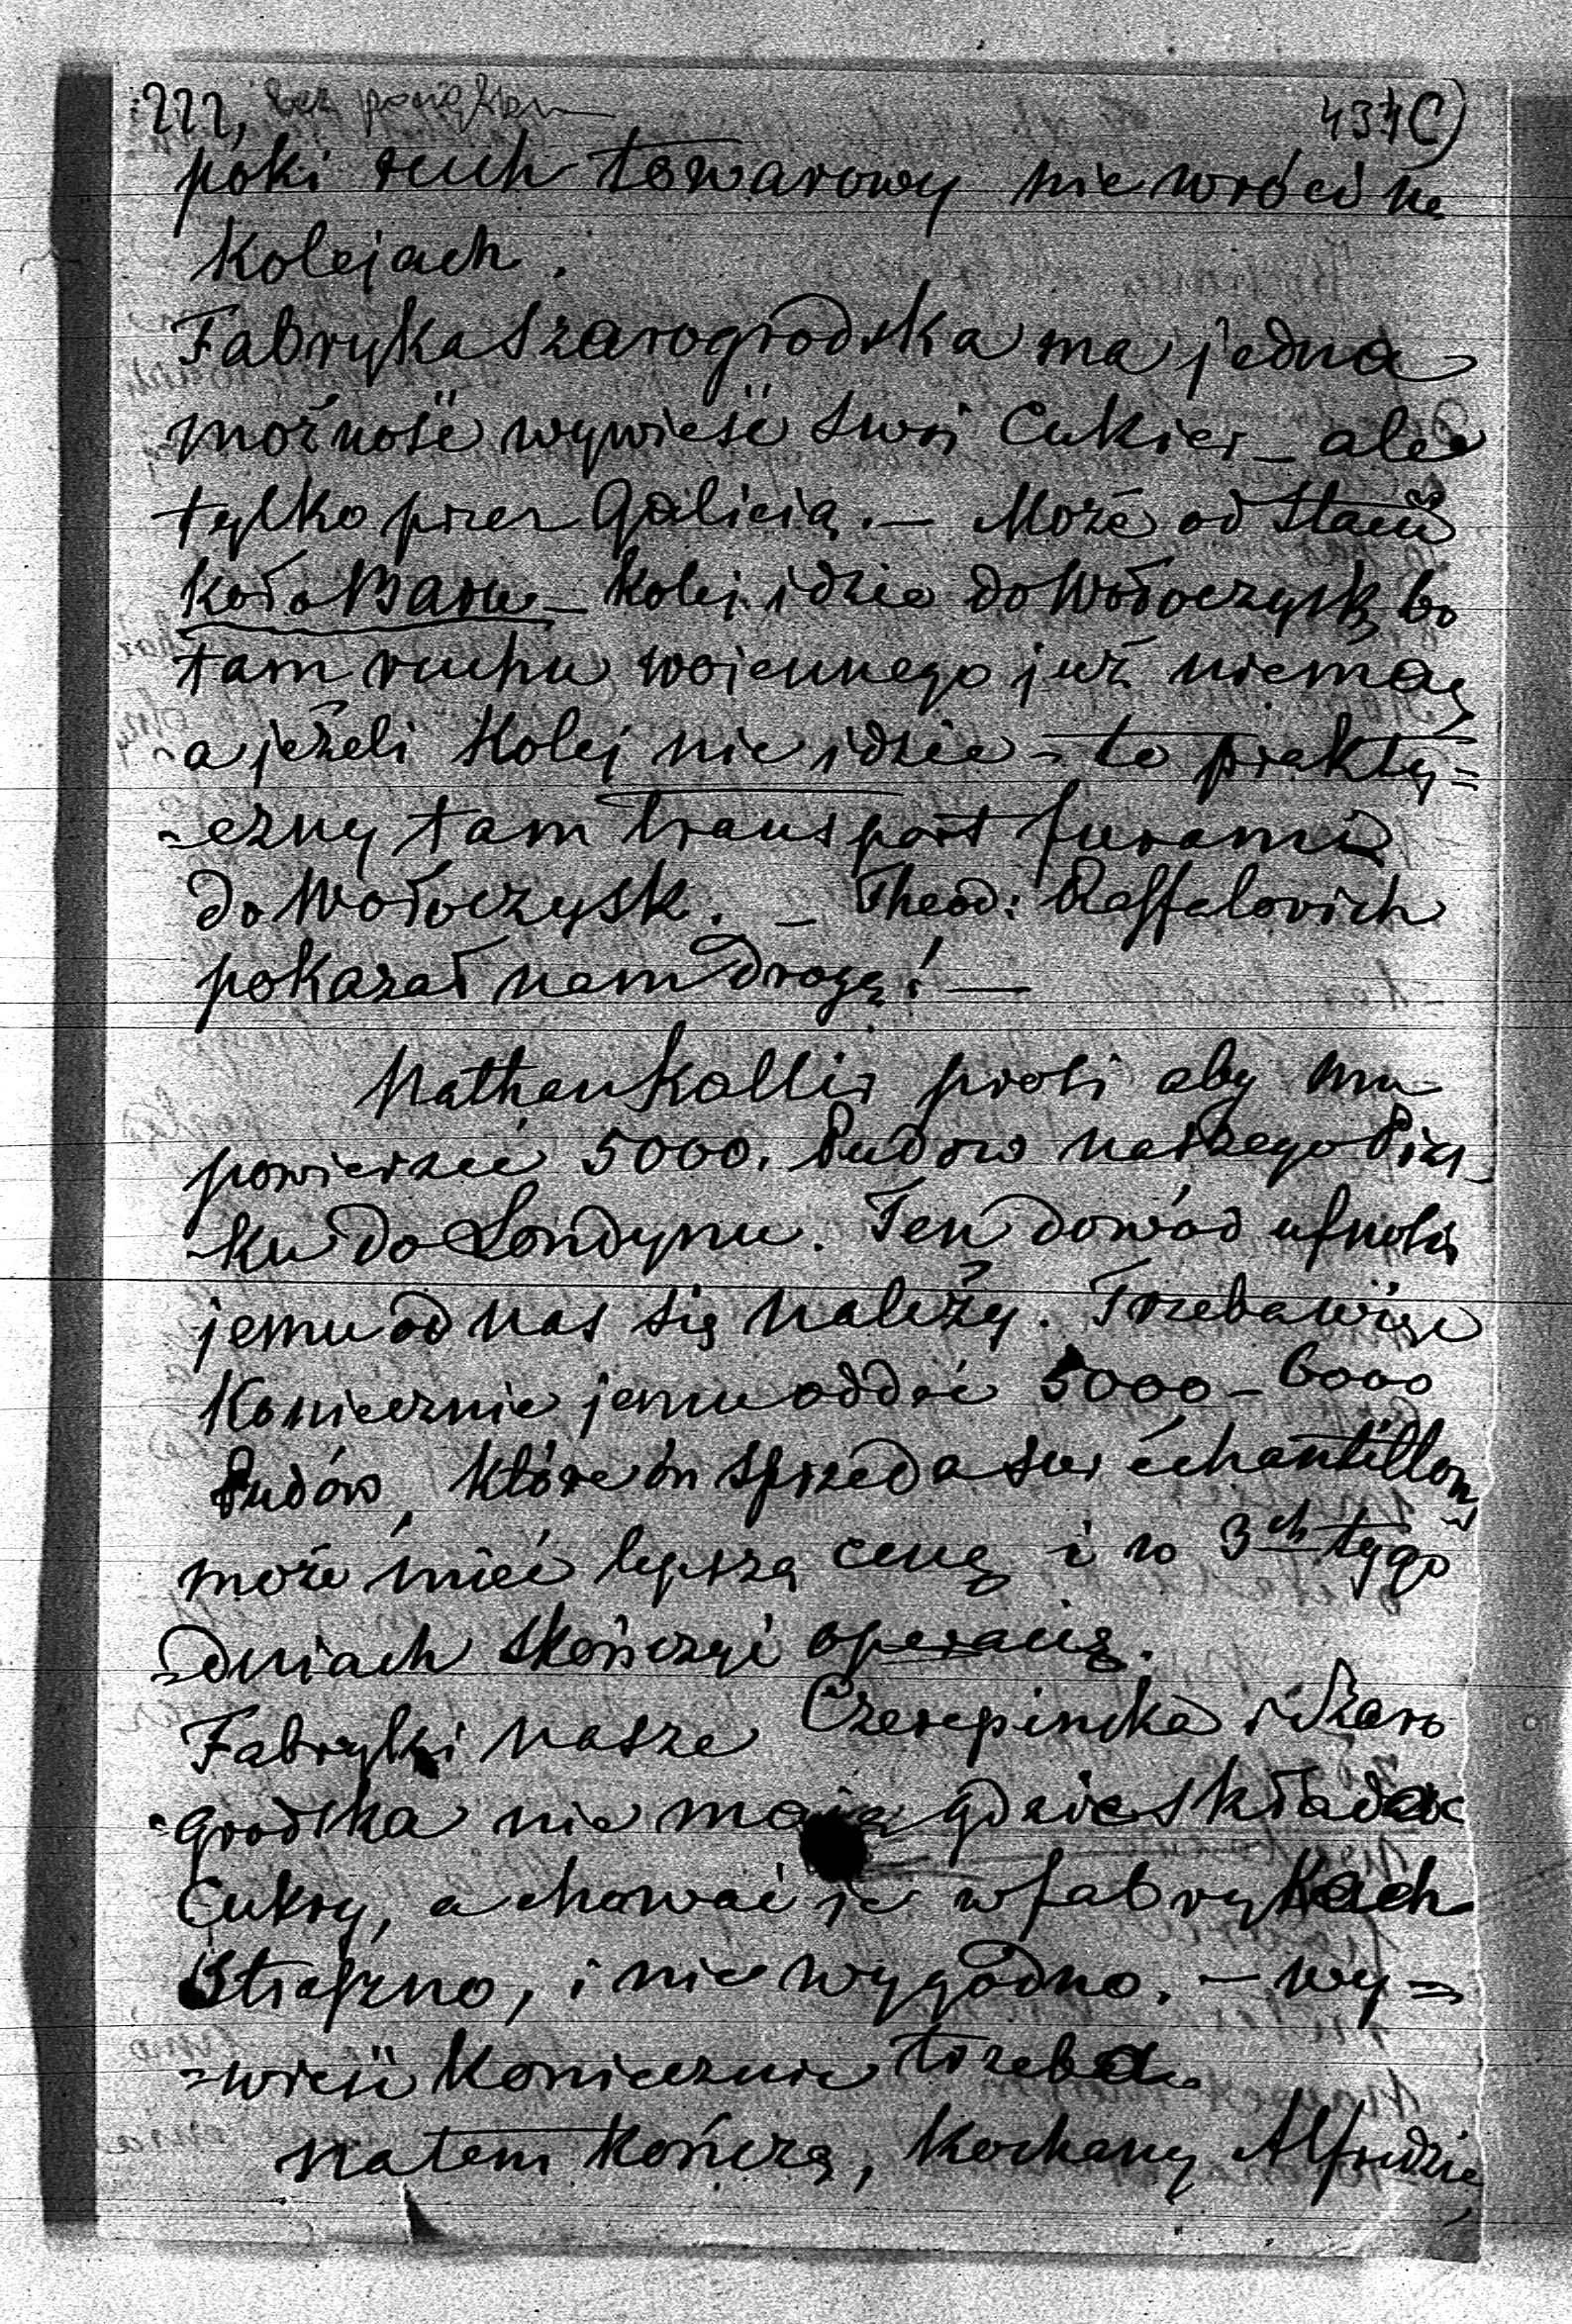 222, bez początku 434C)
póki ruch towarowy nie wróci na
Kolejach.
Fabryka Szarogrodska ma jedna
możność wywieść swój Cukier – ale
tylko przez Galicią. — Może od Stacii
koło Baru – Kolej idzie do Wołoczysk, bo
tam ruchu wojennego już niema,
a jeżeli Kolej nie idzie – to prakty=
=czny tam transport furami
do Wołoczysk. – Theod: Raffalovich
pokazał nam drogę! —
Nathan Kallir prosi aby mu
powierzić 5000. Pudów naszego Pias
-ku do Londynu. Ten dowód ufności
jemu od nas się należy. Trzeba więc
Koniecznie jemu oddać 5000 – 6000
Pudów, które on sprzeda sur échantillon,
może mieć lepszą cenę i w 3ch tygo
=dniach skończyć operacię.
Fabryki nasze Czerepinska i Szaro
=grodska nie mają gdzie składać
Cukry, a chować je w fabrykach
Straszno, i nie wygodno. – wy=
=wieść Koniecznie trzeba.
Na tem kończę, Kochany Alfredzie,